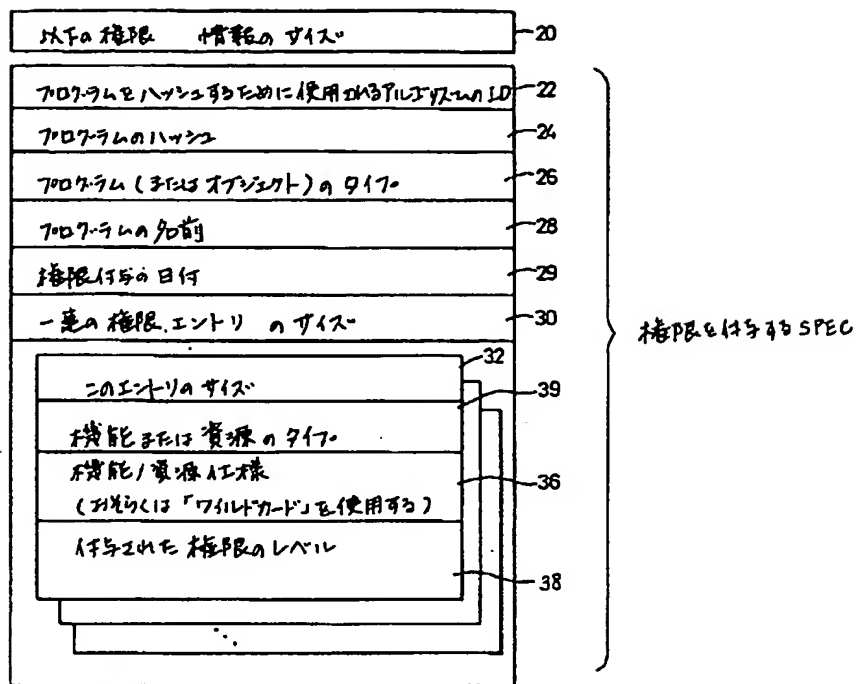 以下の権限 情報のサイズ 20
プログラムをハッシュするために使用されるアルゴリズムのID 22
プログラムのハッシュ 24
プログラム(またはオブジェクト)のタイプ 26
プログラムの名前 28
権限付与の日付 29
一連の権限、エントリ のサイズ 30
32
このエントリのサイズ
39
機能または資源のタイプ
機能/資源仕様 36
(おそらくは「ワイルドカード」を使用する)
付与された権限のレベル
38
権限を付与するSPEC